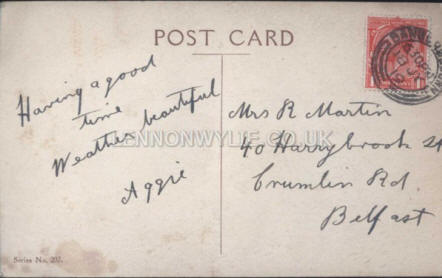 POST CARD
Having a good
time
Weather beautiful
Aggie
Mrs R Martin
40 Harrybrook St
Crumlin Rd.
Belfast
LENNONWYLIE.CO.UK
Series No.